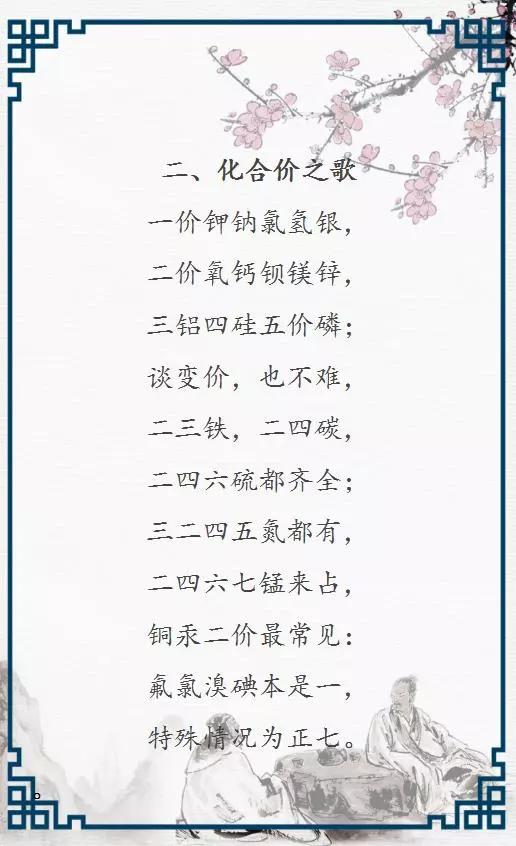 二、化合价之歌
一价钾钠氯氢银，
二价氧钙钡镁锌，
三铝四硅五价磷；
谈变价，也不难，
二三铁，二四碳，
二四六硫都齐全；
三二四五氮都有，
二四六七锰来占，
铜汞二价最常见：
氟氯溴碘本是一，
特殊情况为正七。
。